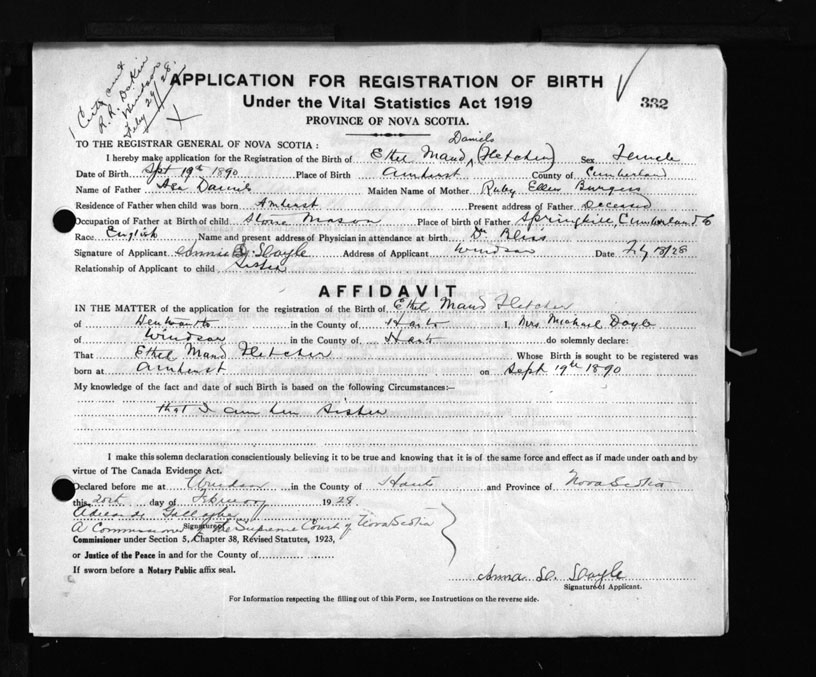 1 Cert. sent
R. R. Dakin
Windsor
Feby 29/28.
APPLICATION FOR REGISTRATION OF BIRTH
Under the Vital Statistics Act 1919
332
PROVINCE OF NOVA SCOTIA.
TO THE REGISTRAR GENERAL OF NOVA SCOTIA:
Daniels
I hereby make application for the Registration of the Birth of Ethel Maud (Fletcher) Sex Female
Date of Birth Sept 19th 1890 Place of Birth Amherst County of Cumberland
Name of Father Asa Daniels Maiden Name of Mother Ruby Ellen Burgess
Residence of Father when child was born Amherst Present address of Father Deceased
Occupation of Father at Birth of child Stone Mason Place of birth of Father Springhill, Cumberland Co
Race English Name and present address of Physician in attendance at birth Dr Bliss
Signature of Applicant Annie D. Doyle Address of Applicant Windsor Date 18/28
Relationship of Applicant to child Sister
AFFIDAVIT
IN THE MATTER of the application for the registration of the Birth of Ethel Maud Fletcher
of in the County of Hants I, Mrs. Michael Doyle
of Windsor in the County of Hants do solemnly declare:
That Ethel Maud Fletcher Whose Birth is sought to be registered was
born at Amherst on Sept 19th 1890
My knowledge of the fact and date of such Birth is based on the following Circumstances:—
that I am her sister
I make this solemn declaration conscientiously believing it to be true and knowing that it is of the same force and effect as if made under oath and by
virtue of The Canada Evidence Act.
Declared before me at Windsor in the County of Hants and Province of Nova Scotia
this 20th day of February 1928
Gallagher
Signature of
A Commissioner of the Supreme Court of Nova Scotia
Commissioner under Section 5, Chapter 38, Revised Statutes, 1923,
or Justice of the Peace in and for the County of
If sworn before a Notary Public affix seal.
Anna D. Doyle
Signature of Applicant.
For Information respecting the filling out of this Form, see Instructions on the reverse side.